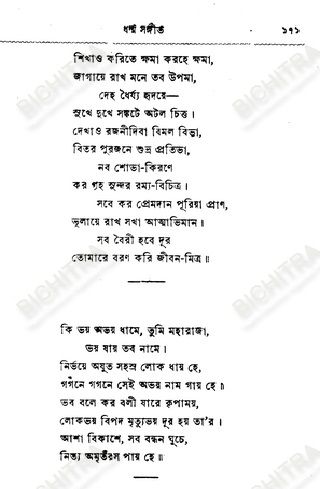 ধর্ম্ম সঙ্গীত ১৭১
শিখাও করিতে ক্ষমা করহে ক্ষমা,
জাগায়ে রাখ মনে তব উপমা,
দেহ ধৈর্য্য হৃদয়ে—
সুখে দুখে সঙ্কটে অটল চিত্ত।
দেখাও রজনীদিবা বিমল বিভা,
বিতর পুরজনে শুভ্র প্রতিভা,
নব শোভা-কিরণে
কর গৃহ সুন্দর রম্য-বিচিত্র।
সবে কর প্রেমদান পূরিয়া প্রাণ,
ভুলায়ে রাখ সখা আত্মাভিমান॥
সব বৈরী হবে দূর
তোমারে বরণ করি জীবন-মিত্র॥
কি ভয় অভয় ধামে, তুমি মহারাজা,
ভয় যায় তব নামে।
নির্ভয়ে অযুত সহস্র লোক ধায় হে,
গগনে গগনে সেই অভয় নাম গায় হে॥
তব বলে কর বলী যারে কৃপাময়,
লোকভয় বিপদ মৃত্যুভয় দূর হয় তা'র।
আশা বিকাশে, সব বন্ধন ঘুচে,
নিত্য অমৃতরস পায় হে॥
BICHITRA
BICHITRA
BICHITRA
BICHITRA
BICHITRA
BICHITRA